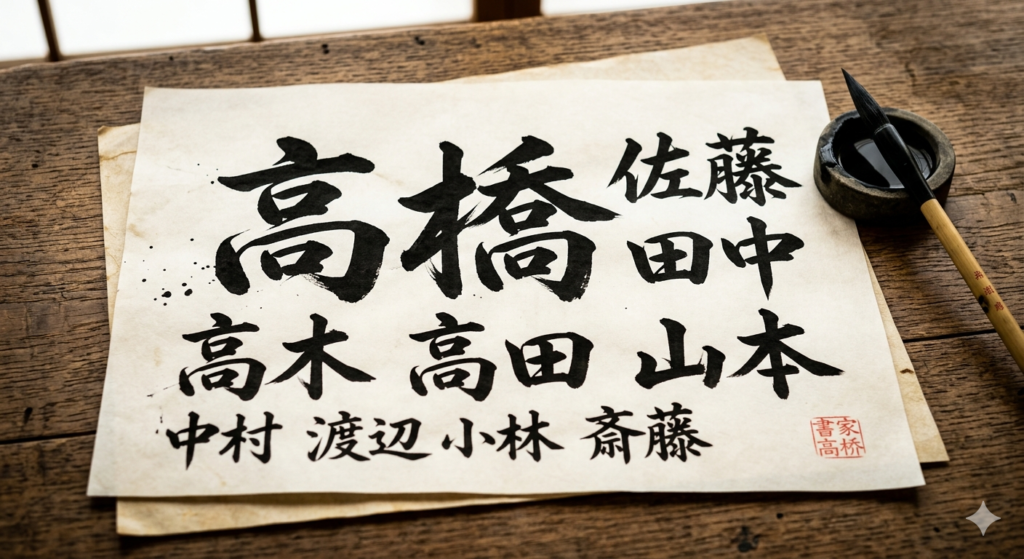 高橋
佐藤
田中
高木 高田 山本
中村 渡辺 小林 斎藤
書家
高桥